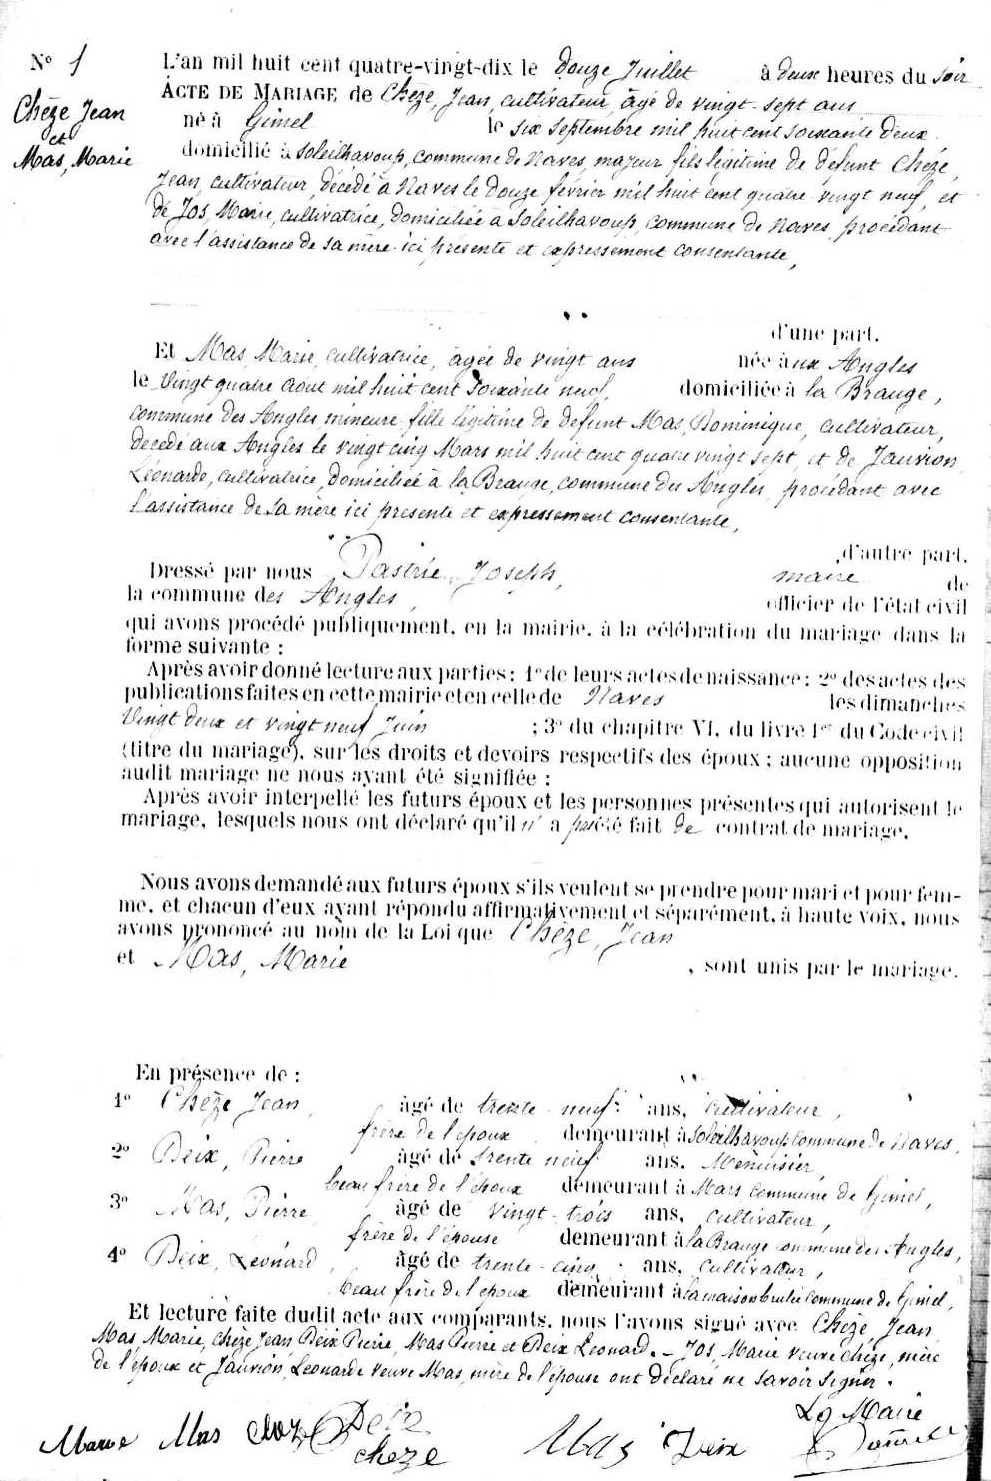 N° 1
Chèze Jean
et
Mas, Marie
L'an mil huit cent quatre-vingt-dix le douze Juillet à deux heures du soir
ACTE DE MARIAGE de Chèze, Jean, cultivateur, âgé de vingt-sept ans
né à Gimel le six septembre mil huit cent soixante deux
domicilié à Soleilhavoup, commune de Naves, majeur fils légitime de défunt Chèze,
Jean, cultivateur, décédé à Naves le douze février mil huit cent quatre-vingt neuf, et
de Jos, Marie, cultivatrice, domiciliée à Soleilhavoup, commune de Naves, procédant
avec l'assistance de sa mère ici présente et expressement consentante,
d'une part.
Et Mas, Marie, cultivatrice, âgée de vingt ans née à ux Angles
le vingt quatre aout mil huit cent soixante neuf, domiciliée à la Brauge,
commune des Angles mineure fille légitime de défunt Mas, Dominique, cultivateur,
décédé aux Angles le vingt cinq Mars mil huit cent quatre vingt sept, et de Jauvion
Léonarde, cultivatrice, domiciliée à la Brauge, commune des Angles, procédant avec
l'assistance de sa mère ici présente et expressement consentante,
d'autre part.
Dressé par nous Pastrie, Joseph, maire de
la commune des Angles, officier de l'état civil
qui avons procédé publiquement, en la mairie, à la célébration du mariage dans la
forme suivante :
Après avoir donné lecture aux parties : 1° de leurs actes de naissance : 2° des actes des
publications faites en cette mairie et en celle de Naves les dimanches
vingt deux et vingt neuf Juin ; 3° du chapitre VI, du livre 1er du Code civil
(titre du mariage), sur les droits et devoirs respectifs des époux ; aucune opposition
audit mariage ne nous ayant été signifiée ;
Après avoir interpellé les futurs époux et les personnes présentes qui autorisent le
mariage, lesquels nous ont déclaré qu'il n'a pas été fait de contrat de mariage.
Nous avons demandé aux futurs époux s'ils veulent se prendre pour mari et pour fem-
me, et chacun d'eux ayant répondu affirmativement et séparément, à haute voix, nous
avons prononcé au nom de la Loi que Chèze, Jean
et Mas, Marie, sont unis par le mariage.
En présence de :
1° Chèze Jean, âgé de trente-neuf ans, cultivateur,
frère de l'époux demeurant à Soleilhavoup commune de Naves,
2° Deix, Pierre âgé de trente neuf ans, Menuisier,
beau frère de l'époux demeurant à Mars commune de Gimel,
3° Mas, Pierre âgé de vingt-trois ans, cultivateur,
frère de l'épouse demeurant à la Brauge commune des Angles,
4° Deix, Léonard, âgé de trente-cinq ans, cultivateur,
beau frère de l'époux demeurant à la maison brulée commune de Gimel,
Et lecture faite dudit acte aux comparants, nous l'avons signé avec Chèze, Jean
Mas Marie, Chèze Jean Deix Pierre, Mas Pierre et Deix Léonard. - Jos, Marie veuve Chèze, mère
de l'époux et Jauvion, Léonarde veuve Mas, mère de l'épouse ont déclaré ne savoir signer.
Le Maire
Marie Mas Deix
cheze Mas Deix